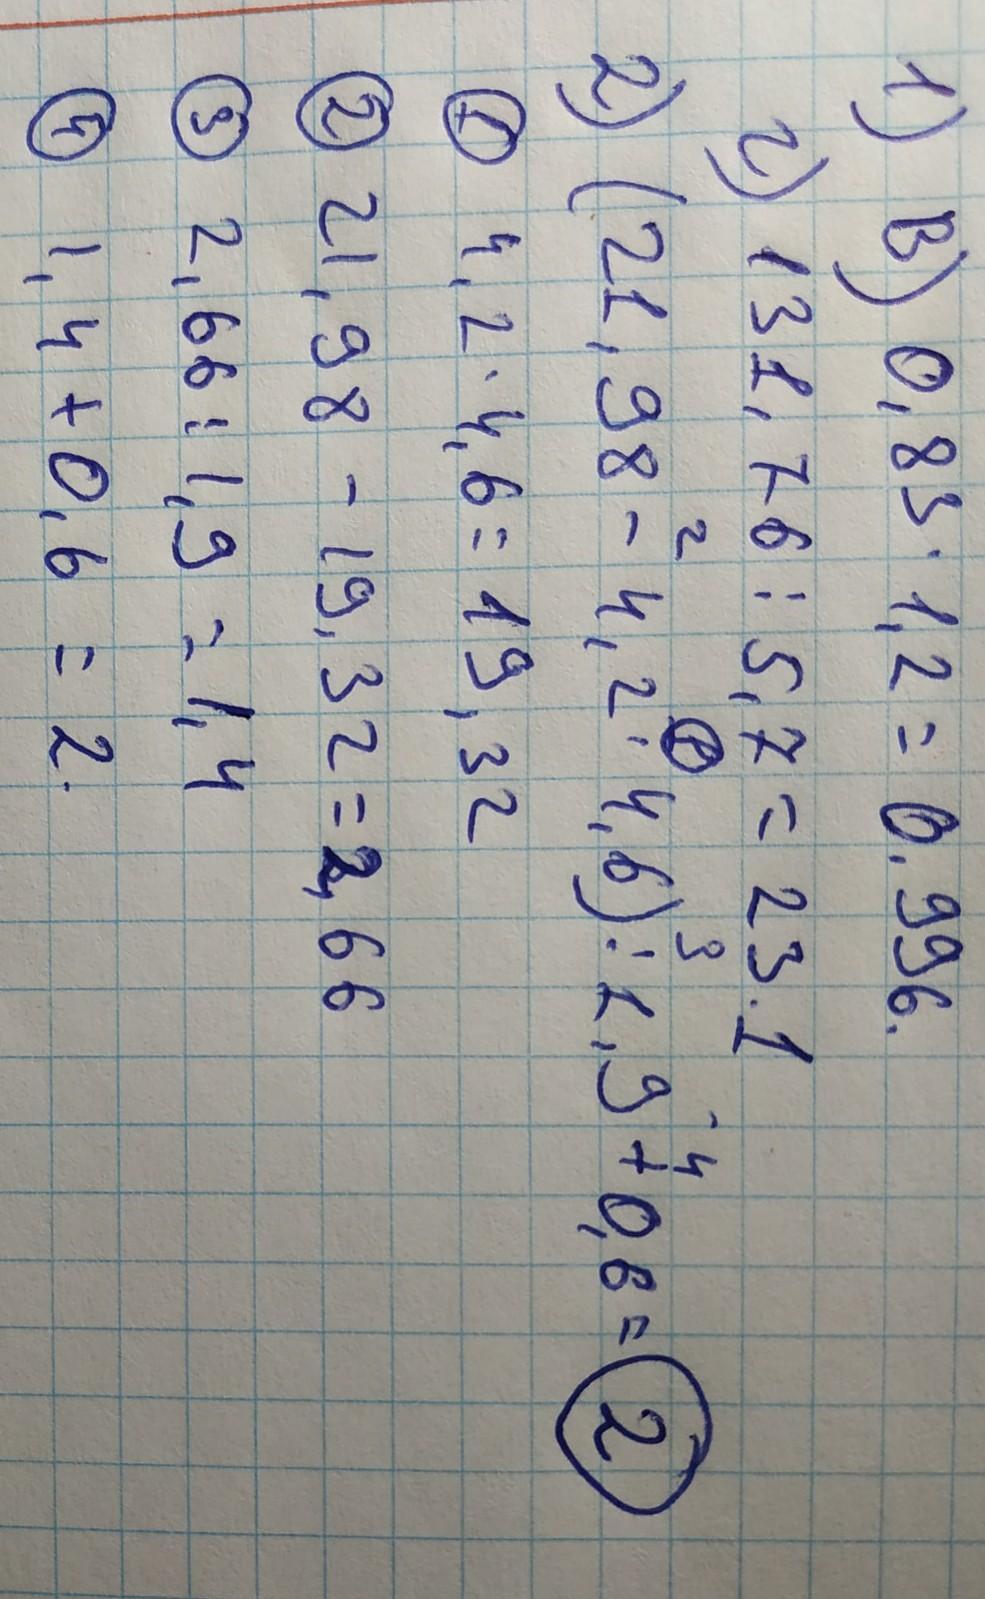 1) В) 0,83 · 1,2 = 0.996.
г) 131,76 : 5,7 = 23.1
2) (21,98 - 4,2 · 4,6) : 1,9 + 0,6 = 2
2 1 3 4
1 4,2 · 4,6 = 19,32
2 21,98 - 19,32 = 2,66
3 2,66 : 1,9 = 1,4
4 1,4 + 0,6 = 2.